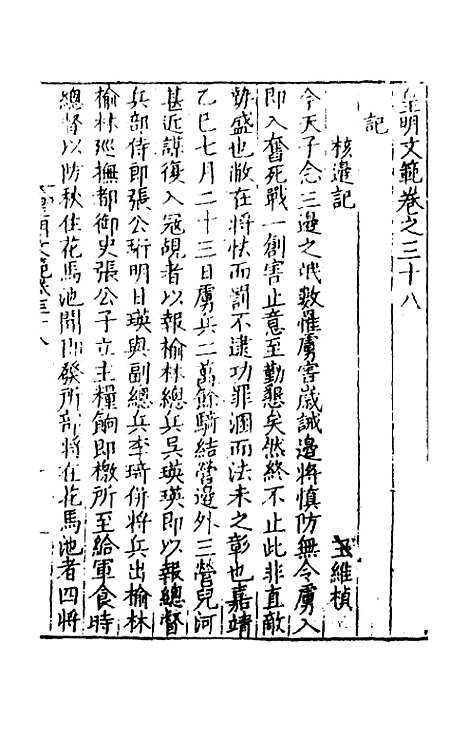 皇明文範卷之三十八
記
核邊記
王維楨
今天子念三邊之氓數罹虜害歲誡邊將慎防無令虜入
即入奮死戰一創害止意至勤懇矣然終不止此非直敵
勍盛也敝在將怯而罰不逮功罪溷而法未之彰也嘉靖
乙巳七月二十三日虜兵二萬餘騎結營邊外三營兒河
甚近謀復入寇覘者以報榆林總兵吳瑛瑛即以報總督
兵部侍郎張公珩明日瑛與副總兵李琦併將兵出榆林
榆林巡撫都御史張公子立主糧餉即檄所至給軍食時
總督以防秋住花馬池聞即發所部將在花馬池者四將
皇明文範卷三十八
一